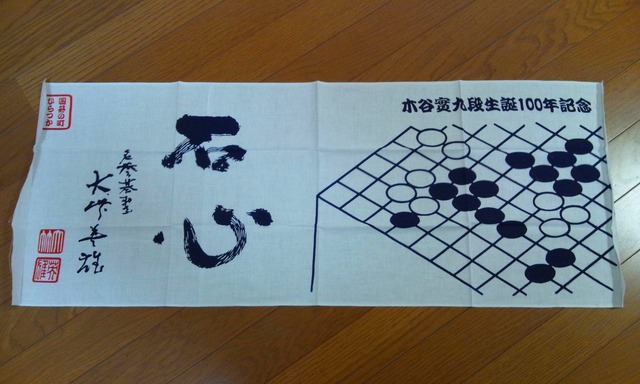 木谷實九段生誕100年記念
石心
名誉碁聖
大竹英雄
囲碁の町
ひらつか
大竹
英雄